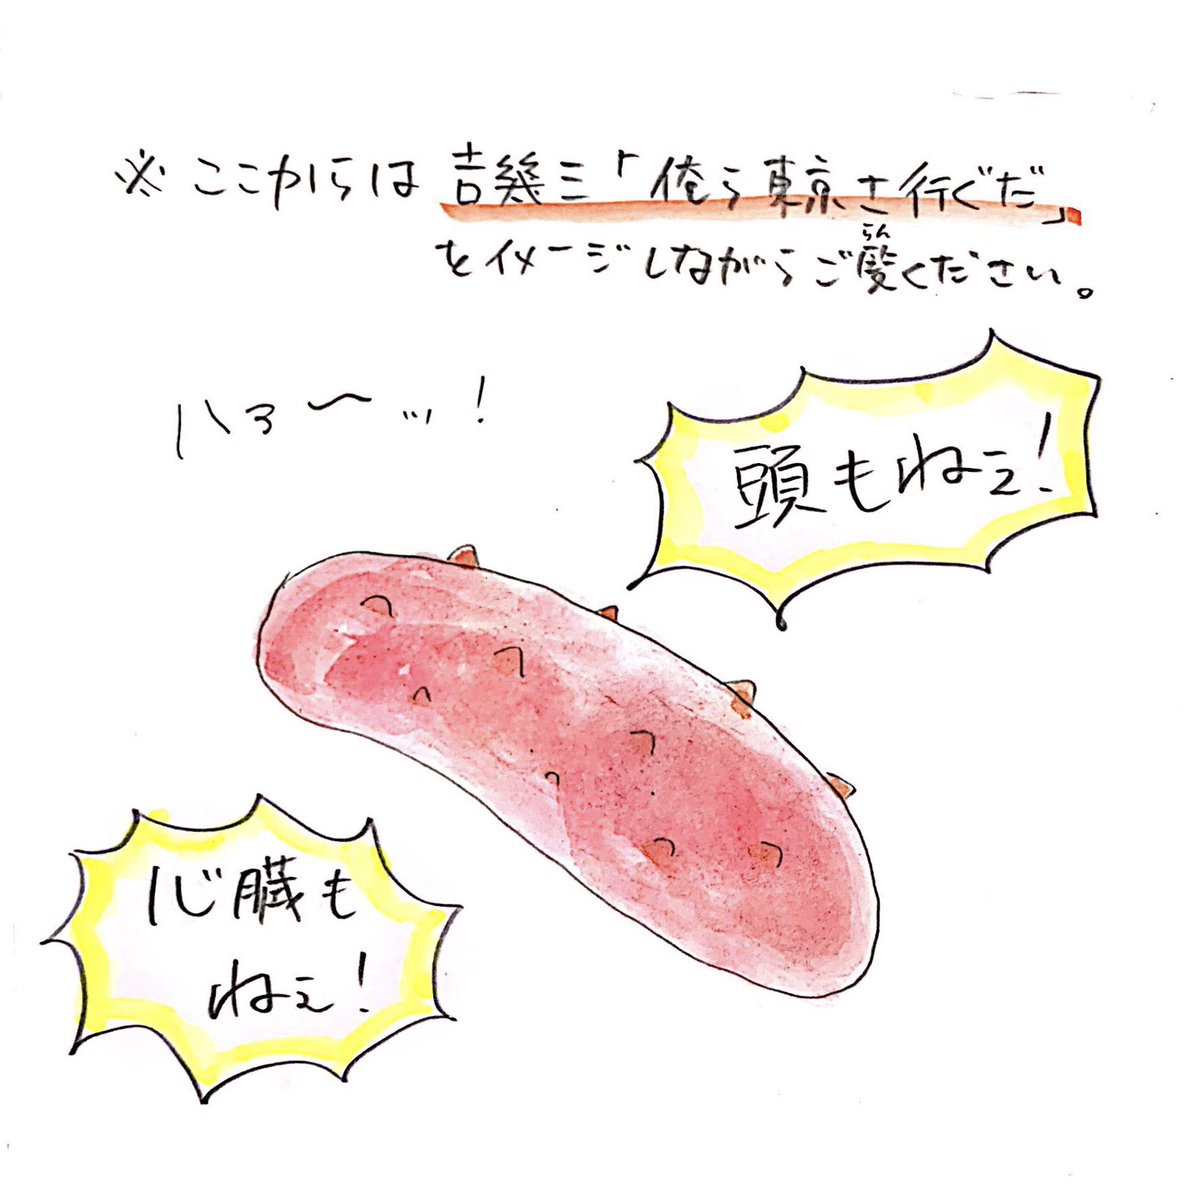 ※ここからは吉幾三「俺ら東京さ行ぐだ」
をイメージしながらご覧ください。
らん
ハァ〜ッ!
頭もねぇ!
心臓も
ねぇ!